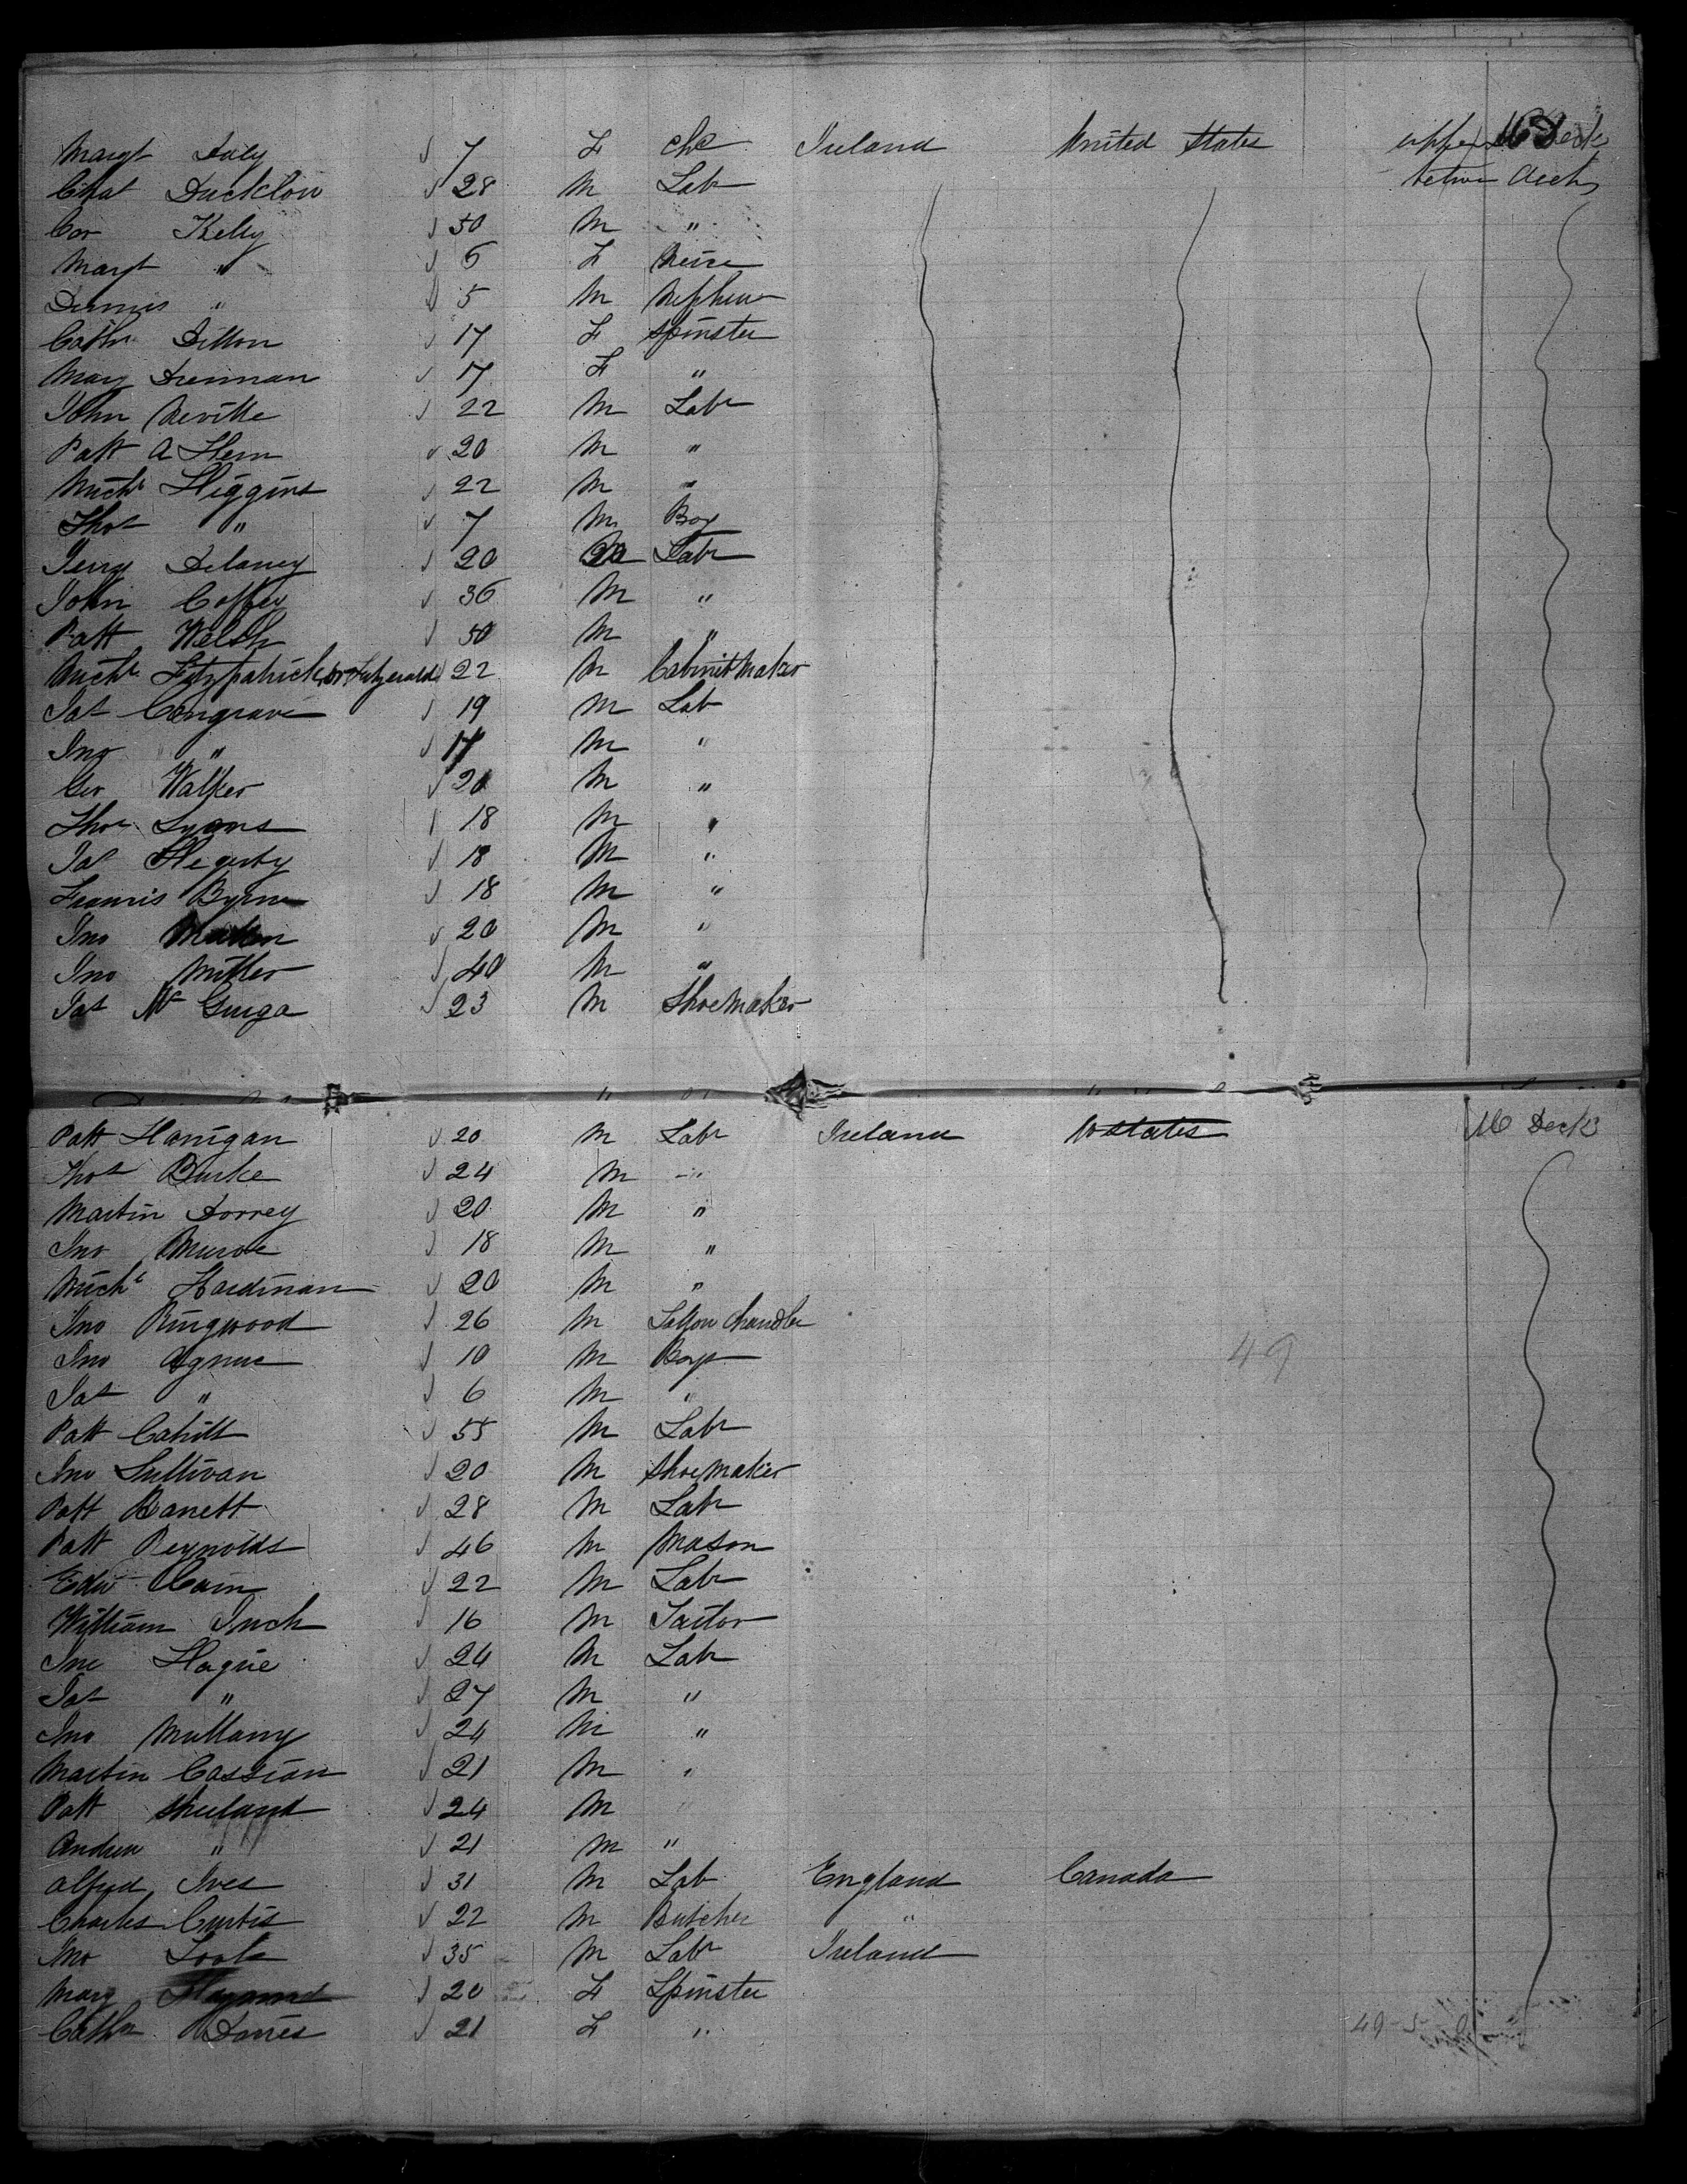 Margt Daly 7 F Chd Ireland United States upper Deck
Chas Ducklow 28 M Labr between decks
Cor Kelly 50 M "
Margt " 6 F Neice
Dennis " 5 M Nephew
Cathn Dillon 17 F Spinster
Mary Drennan 17 F "
John Neville 22 M Labr
Patt A Hern 20 M "
Michl Higgins 22 M "
Thos " 7 M Boy
Jerry Delaney 20 M Labr
John Coffey 36 M "
Patt Welsh 50 M "
Michl Fitzpatrick or Fitzgerald 22 M Cabinet Maker
Jas Congrave 19 M Lab
Jno " 17 M "
Geo Walker 20 M "
Thos Lyons 18 M "
Jas Hegerty 18 M "
Francis Byrne 18 M "
Jno 20 M "
Jno Miller 40 M "
Jas Mc Guiga 23 M Shoemaker
Patt Hanigan 20 M Labr Ireland U States M Deck
Thos Burke 24 M "
Martin Dorrey 20 M "
Jno 18 M "
Michl Hardiman 20 M "
Jno Ringwood 26 M Tallow Chandler
Jno Agnue 10 M Boy 49
Jas " 6 M "
Patt Cahill 55 M Labr
Jno Sullivan 20 M Shoemaker
Patt Barrett 28 M Labr
Patt Reynolds 46 M Mason
Edw Cain 22 M Labr
William Inch 16 M Tailor
Jno Hague 24 M Labr
Jas " 27 M "
Jno Mullany 24 M "
Martin Cassian 21 M "
Patt 24 M "
Andrew " 21 M "
Alfred Ives 31 M Lab England Canada
Charles Curtis 22 M Butcher "
Jno 35 M Labr Ireland
Mary 20 F Spinster
Cathn Davies 21 F " 49